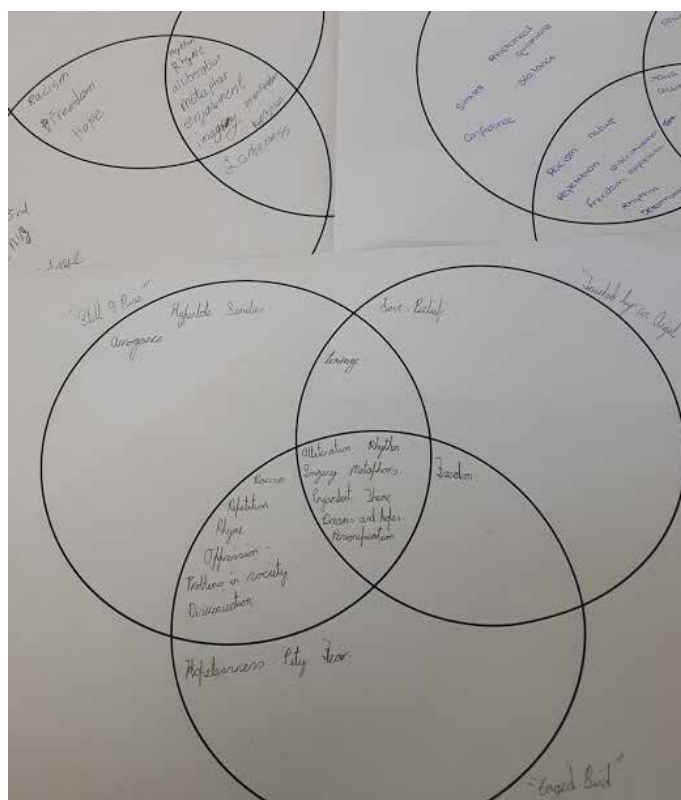 Racism
Freedom
Hope
Rhythm
Rhyme
alliberation
metaphor
enjabment
imagery
Loneness
Rhetorical
questions
Similes
Confidence
Racism
Repetition
discrimination
freedom
Rhythm
"Still I Rise"
Hyperbole Similes
Arrogance
"Touched by an Angel"
Love Belief
Courage
Alliteration Rhythm
Imagery Metaphors
Enjambent Theme
Dreams and hopes
Personification
Freedom
Racism
Repetition
Rhyme
Oppression
Problems in society
Discrimination
Hopelessness Pity Fear
"Caged Bird"